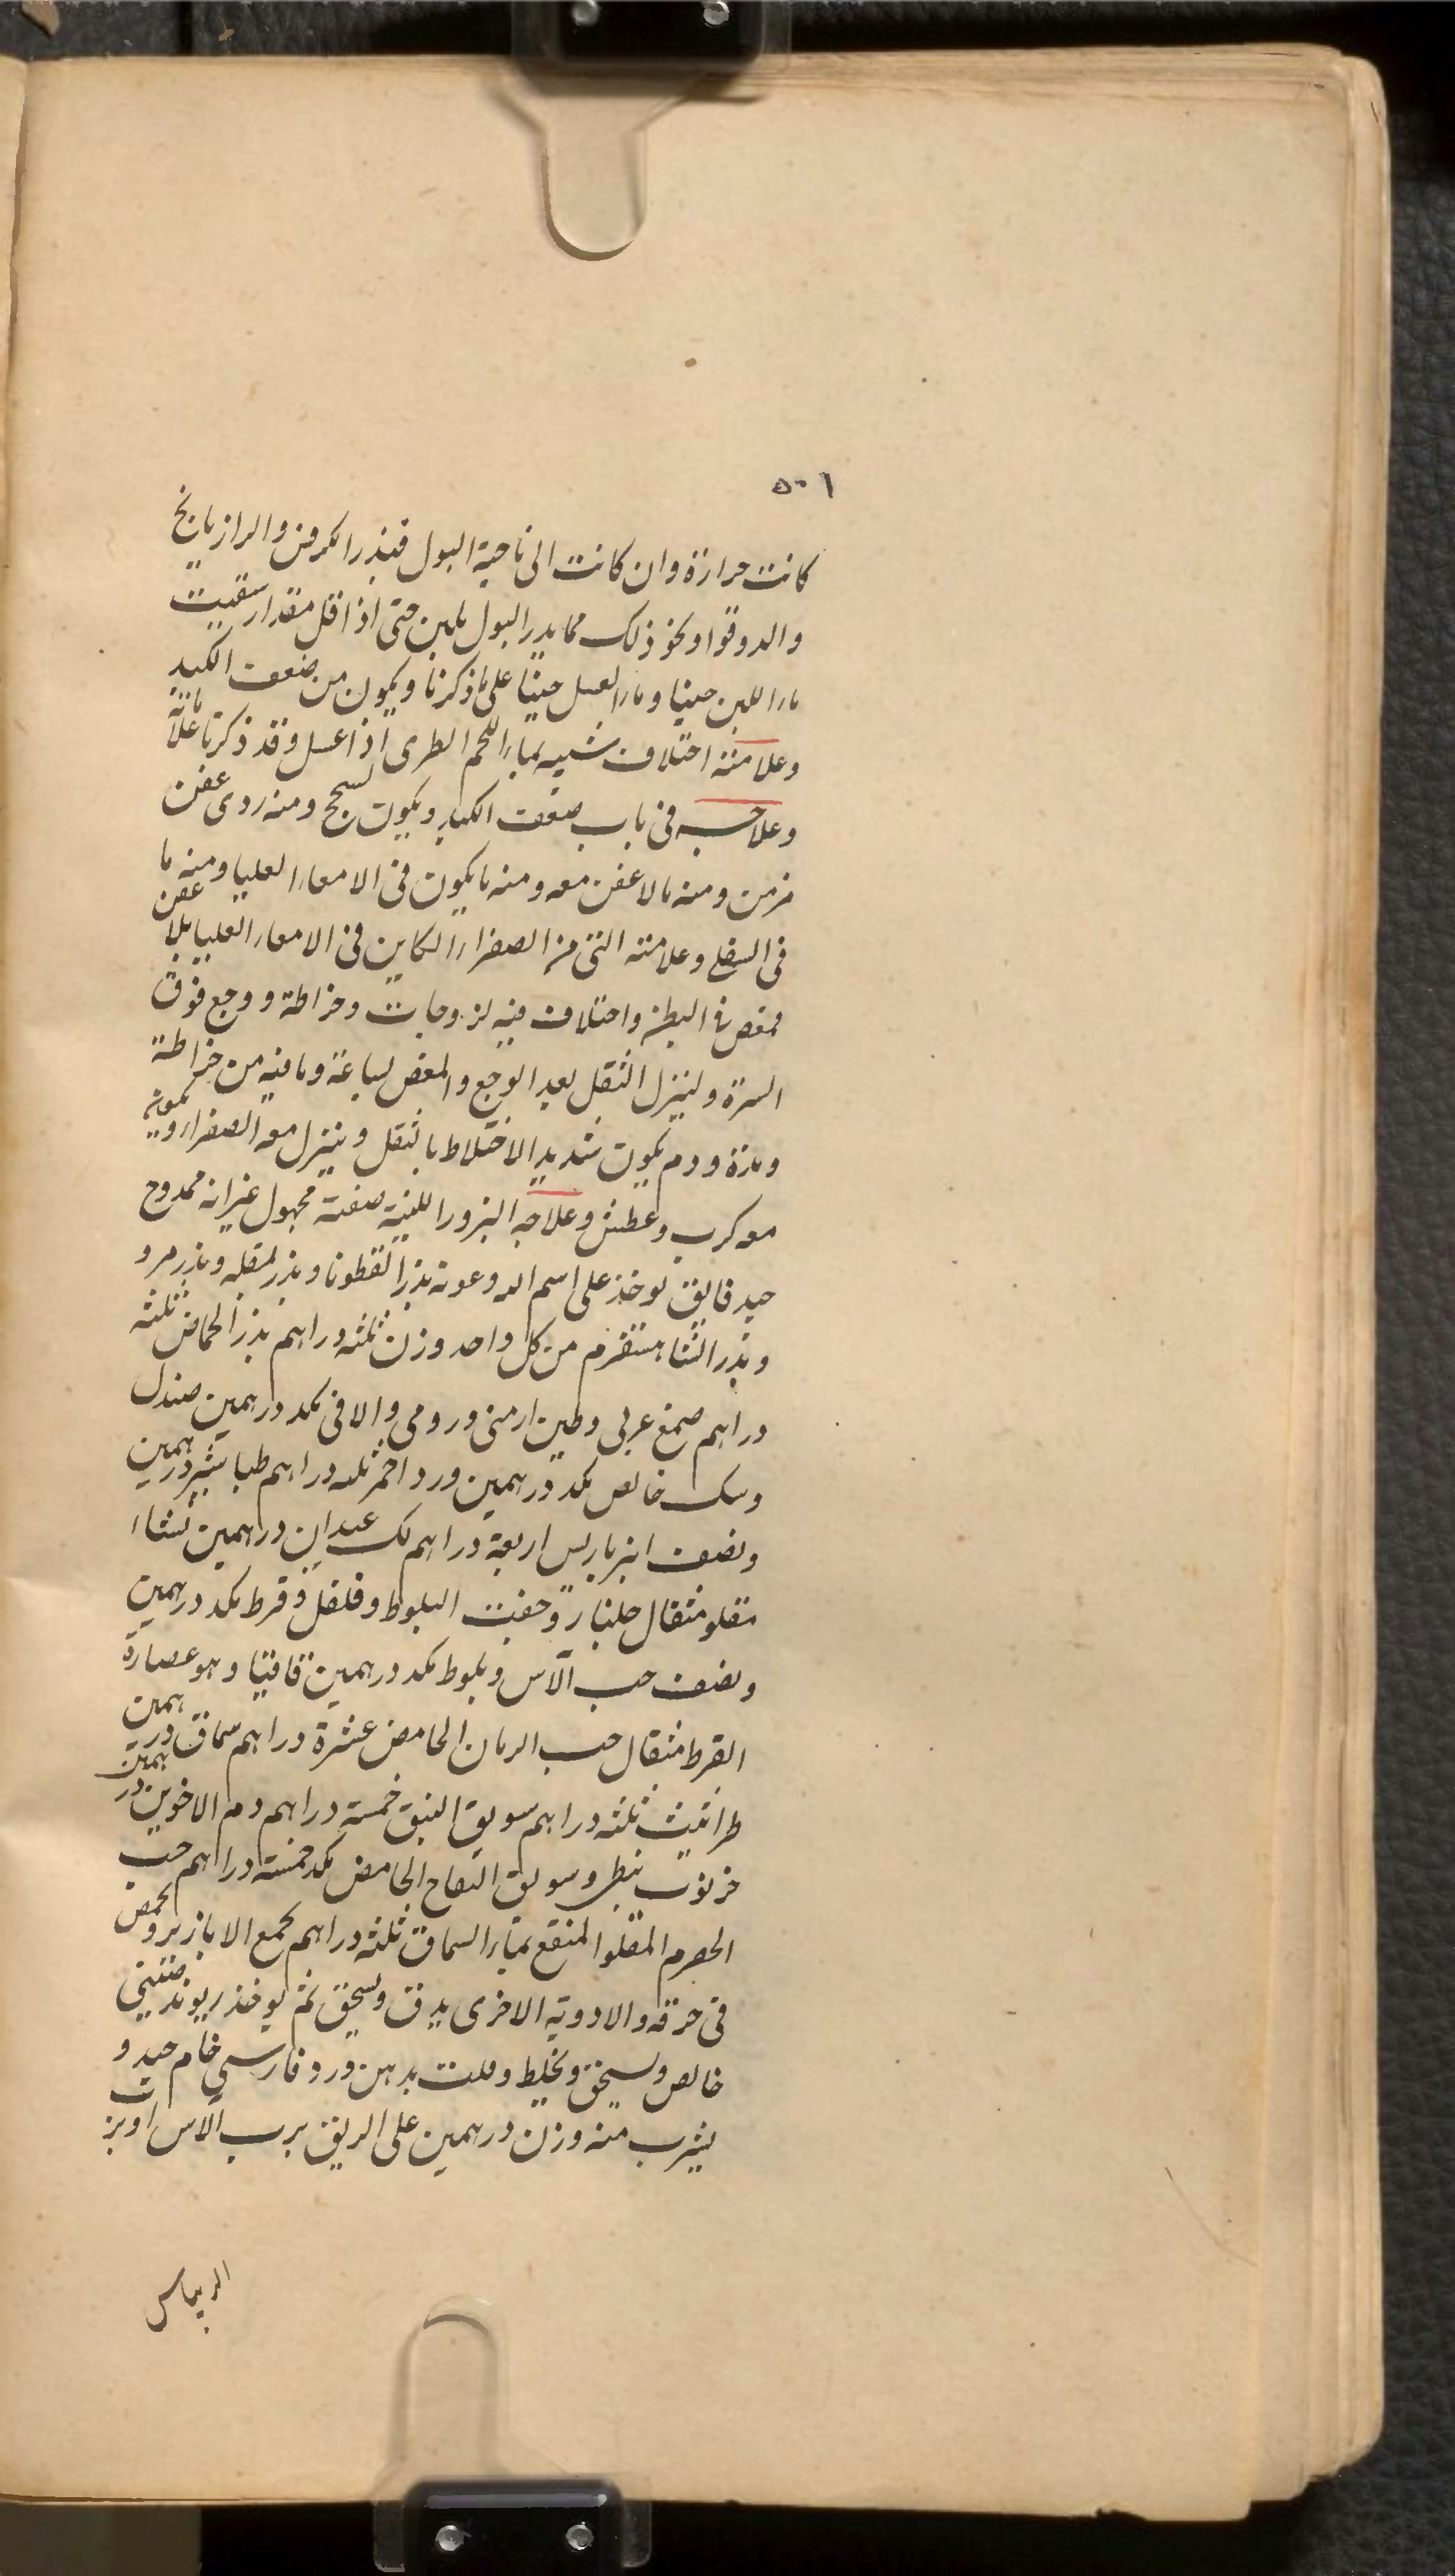 ٥٠١
كانت حرارة وان كانت الى ناحية البول فبذر الكرفس والرازيانج
والدوقوا ونحو ذلك مما يدر البول بلين حتى اذا قل مقدار سقيت
ماء اللبن حينا وماء العسل حينا على ما ذكرنا ويكون من ضعف الكبد
وعلامته اختلاف شبيه بماء اللحم الطرى اذا غسل وقد ذكرنا علاماته
وعلاجه فى باب ضعف الكبد ويكون لسحج ومنه ردى عفن
مزمن ومنه ما لا عفن معه ومنه ما يكون فى الامعاء العليا ومنه ما
فى السفلى وعلامته التى من الصفراء الكاين فى الامعاء العليا بلا عفن
مغص فى البطن واختلاف فيه لزوجات وخراطة ووجع فوق
السرة ولينزل الثقل بعد الوجع والمغص لساعة وما فيه من خراطة
ومدة ودم يكون شديد الاختلاط بالثقل وينزل معه الصفراء ويكون
معه كرب وعطش وعلاجه البزور اللينة صفته مجهول غير انه ممدوح
جيد فايق يوخذ على اسم الله وعونه بذر القطونا وبذر لمقله وبذر مرو
وبذر الشاهسفرم من كل واحد وزن ثلثه دراهم بذر الحماض ثلثه
دراهم صمغ عربى وطين ارمنى ورومى والافى بكد درهمين صندل
وسك خالص بكد درهمين ورد احمر ثلثه دراهم طباشير درهمين
ونصف انبرباريس اربعة دراهم لك عيدان درهمين نشاء
مقلو مثقال جلنار وجفت البلوط وفلفل وقرط بكد درهمين
ونصف حب الآس وبلوط بكد درهمين قاقيا وهو عصارة
القرط مثقال حب الرمان الحامض عشرة دراهم سماق درهمين
طراثيث ثلثه دراهم سويق النبق خمسة دراهم دم الاخوين درهمين
خرنوب نبطى وسويق التفاح الحامض بكد خمسة دراهم حب
الحصرم المقلوا المنقع بماء السماق ثلثه دراهم يجمع الابازير ويحمص
فى خرقه والادوية الاخرى يدق ويسحق ثم يوخذ ريوند صينى
خالص ويسحق ويخلط ويلت بدهن ورد فارسى خام جيد و
يشرب منه وزن درهمين على الريق برب الآس او برب
الريباس